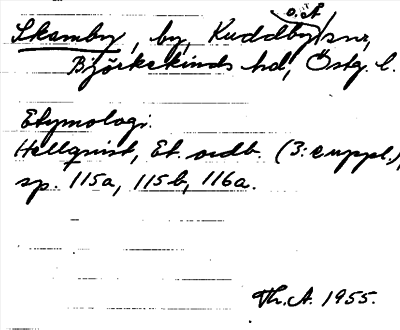 Skamby, by, Kuddby o. A snr,
Björkekinds hd, Östg. l.
Etymologi.
Hellquist, Et. ordb. (3: e uppl.),
sp. 115a, 115b, 116a.
Th. A. 1955.